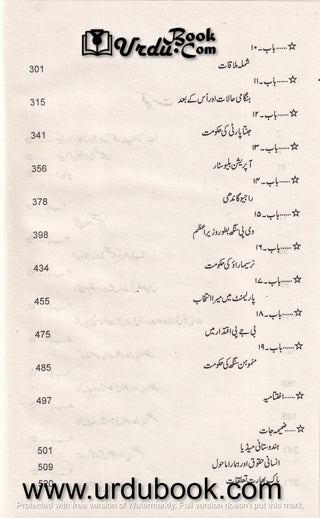 Urdu Book.Com
☆......باب۔۱۰
شملہ ملاقات 301
☆......باب۔۱۱
ہنگامی حالات اور اُس کے بعد 315
☆......باب۔۱۲
جنتا پارٹی کی حکومت 341
☆......باب۔۱۳
آپریشن بلیوسٹار 356
☆......باب۔۱۴
راجیو گاندھی 378
☆......باب۔۱۵
وی پی سنگھ بطور وزیراعظم 398
☆......باب۔۱۶
نرسیما راؤ کی حکومت 434
☆......باب۔۱۷
پارلیمنٹ میں میرا انتخاب 455
☆......باب۔۱۸
بی جے پی اقتدار میں 475
☆......باب۔۱۹
منموہن سنگھ کی حکومت 485
☆......اختتامیہ 497
☆......ضمیمہ جات
ہندوستانی میڈیا 501
انسانی حقوق اور ہمارا ماحول 509
پاک بھارت تعلقات 520
www.urdubook.com
Protected with free version of Watermarkly. Full version doesn't put this mark.